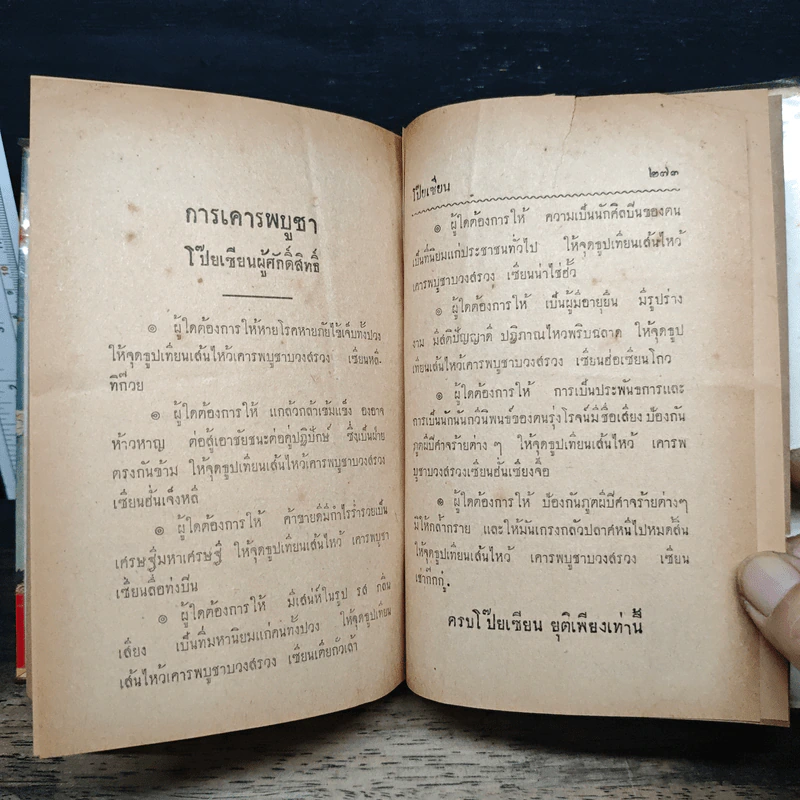 การเคารพบูชา
โป๊ยเซียนผู้ศักดิ์สิทธิ์
๑ ผู้ใดต้องการให้หายโรคหายภัยไข้เจ็บทั้งปวง
ให้จุดธูปเทียนเส้นไหว้เคารพบูชาบวงสรวง เซียนหลี-
ทิก๊วย
๑ ผู้ใดต้องการให้ แกล้วกล้าเข้มแข็ง องอาจ
ห้าวหาญ ต่อสู้เอาชัยชนะต่อคู่ปฏิปักษ์ ซึ่งเป็นฝ่าย
ตรงกันข้าม ให้จุดธูปเทียนเส้นไหว้เคารพบูชาบวงสรวง
เซียนฮั่นเจ็งหลี
๑ ผู้ใดต้องการให้ ค้าขายดีมีกำไรร่ำรวยเป็น
เศรษฐีมหาเศรษฐี ให้จุดธูปเทียนเส้นไหว้ เคารพบูชา
เซียนลือท่งปิน
๑ ผู้ใดต้องการให้ มีเสน่ห์ในรูป รส กลิ่น
เสียง เป็นที่มหานิยมแก่คนทั้งปวง ให้จุดธูปเทียน
เส้นไหว้เคารพบูชาบวงสรวง เซียนเตียก๊วเล้า
โป๊ยเซียน ๒๗๓
๑ ผู้ใดต้องการให้ ความเป็นนักศิลปินของตน
เป็นที่นิยมแก่ประชาชนทั่วไป ให้จุดธูปเทียนเส้นไหว้
เคารพบูชาบวงสรวง เซียนน่าไช่ฮั้ว
๑ ผู้ใดต้องการให้ เป็นผู้มีอายุยืน มีรูปร่าง
งาม มีสติปัญญาดี ปฏิภาณไหวพริบฉลาด ให้จุดธูป
เทียนเส้นไหว้เคารพบูชาบวงสรวง เซียนฮ่อเซียนโกว
๑ ผู้ใดต้องการให้ การเป็นประพันธการและ
การเป็นนักนันทวีนิพนธ์ของตนรุ่งโรจน์มีชื่อเสียง ป้องกัน
ภูตผีปีศาจร้ายต่าง ๆ ให้จุดธูปเทียนเส้นไหว้ เคารพ
บูชาบวงสรวงเซียนฮั่นเซียงจื๊อ
๑ ผู้ใดต้องการให้ ป้องกันภูตผีปีศาจร้ายต่างๆ
มิให้กล้ำกราย และให้มันเกรงกลัวปลาศหนีไปหมดสิ้น
ให้จุดธูปเทียนเส้นไหว้ เคารพบูชาบวงสรวง เซียน
เช่าก๊กกู๋.
ครบโป๊ยเซียน ยุติเพียงเท่านี้